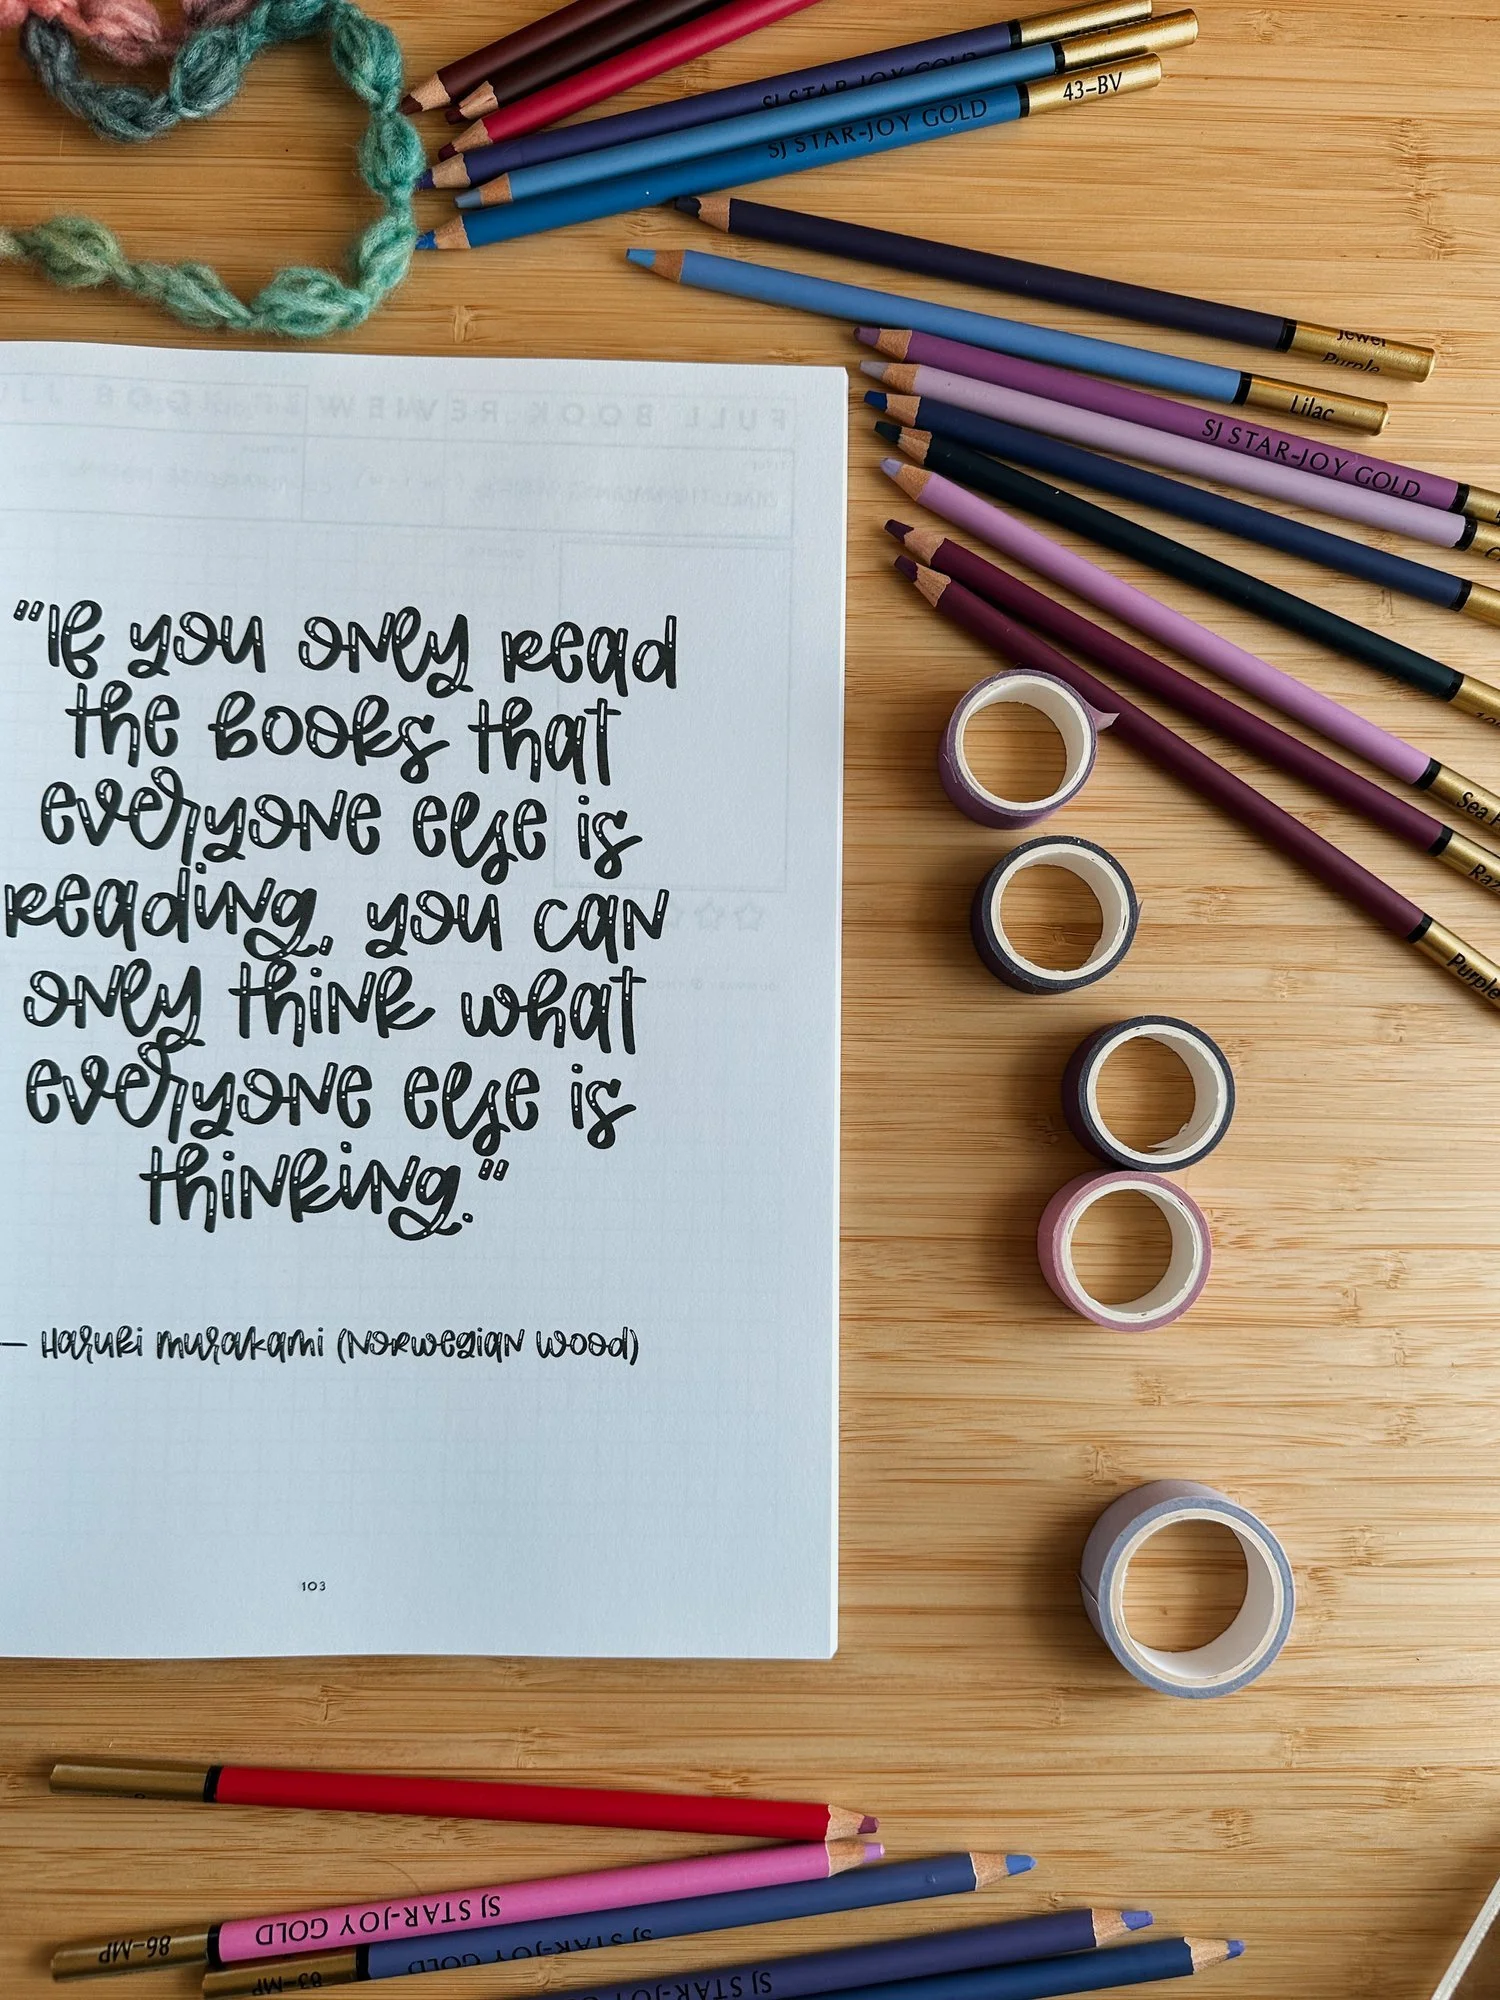 SJ STAR-JOY GOLD
SJ STAR-JOY GOLD
43-BV
Jewel
Purple
Lilac
SJ STAR-JOY GOLD
FULL BOOK REVIEW
"If you only read
the books that
everyone else is
reading, you can
only think what
everyone else is
thinking."
— Haruki Murakami (Norwegian Wood)
103
Sea
Purple
86-MP
SJ STAR-JOY GOLD
83-MP
SJ STAR-JOY GOLD
SJ STAR-JOY